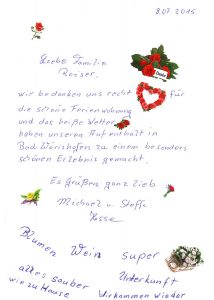 8.07.2015
Liebe Familie
wir bedanken uns recht für
die schöne Ferienwohnung
und das heiße Wetter
haben unseren Aufenthalt in
Bad Wörishofen zu einem besonders
schönen Erlebnis gemacht.
Es grüßen ganz lieb
Michael u Steffi
Blumen Wein super
alles sauber Unterkunft
wie zu Hause Wir kommen wieder